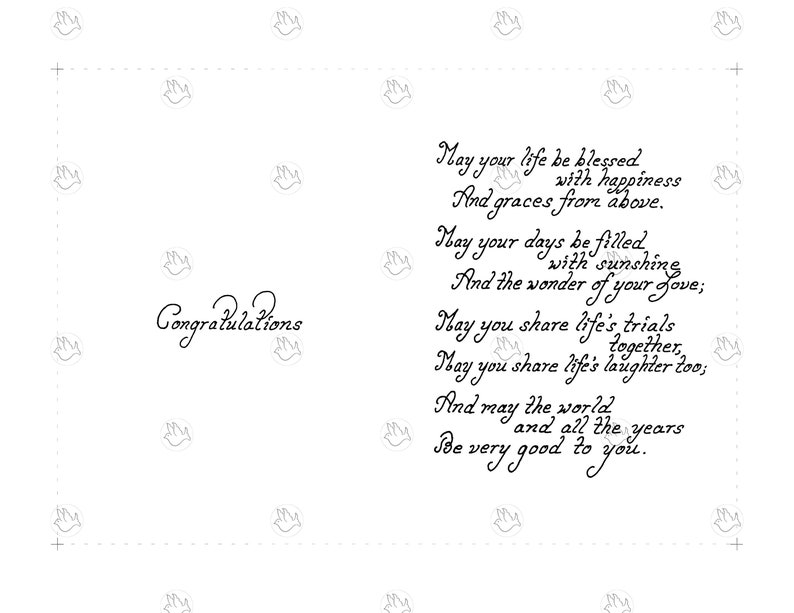 Congratulations
May your life be blessed
with happiness
And graces from above.
May your days be filled
with sunshine
And the wonder of your Love;
May you share life's trials
together,
May you share life's laughter too;
And may the world
and all the years
Be very good to you.